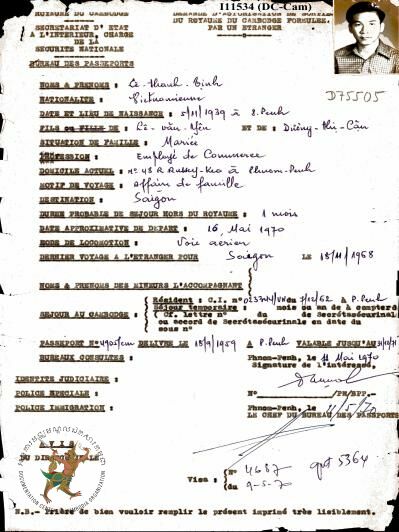 I11534 (DC-Cam)
ROYAUME DU CAMBODGE
DU ROYAUME DU CAMBODGE FORMULEE
SECRETARIAT D'ETAT
PAR UN ETRANGER
A L'INTERIEUR, CHARGE
DE LA
SECURITE NATIONALE
BUREAU DES PASSEPORTS
D75505
NOMS & PRENOMS : Lê-thanh-Bình
NATIONALITE : Vietnamienne
DATE ET LIEU DE NAISSANCE : 5/11/1939 à P.Penh
FILS ou FILLE DE : Lê-văn-Yên ET DE : Dương-thị-Cận
SITUATION DE FAMILLE : Mariée
PROFESSION : Employé de Commerce
DOMICILE ACTUEL : N° 43 R Russey-Keo à Phnom-Penh
MOTIF DE VOYAGE : Affaire de famille
DESTINATION : Saigon
DUREE PROBABLE DE SEJOUR HORS DU ROYAUME : 1 mois
DATE APPROXIMATIVE DE DEPART : 16 Mai 1970
MODE DE LOCOMOTION : Voie aérien
DERNIER VOYAGE A L'ETRANGER POUR Saigon LE 18/11/1968
NOMS & PRENOMS DES MINEURS L'ACCOMPAGNANT
Résident : C.I. n° du 7/12/62 A P.Penh
Séjour temporaire : mois ou an de à compter
SEJOUR AU CAMBODGE : (Cf. lettre n° du de
ou accord de en date du
sous n°
PASSEPORT N° DELIVRE LE 18/9/1959 A P.Penh VALABLE JUSQU'AU
BUREAUX CONSULTES : Phnom-Penh, le 11 Mai 1970
Signature de l'intéressé.
IDENTITE JUDICIAIRE :
POLICE SPECIALE : N° /PN/BPP.-
POLICE IMMIGRATION : Phnom-Penh, le 11/5/70
LE CHEF DU BUREAU DES PASSEPORTS
AVIS
Visa : N° 4687
du 9-5-70
5364
DOCUMENTATION CENTER OF CAMBODIA ORGANIZATION
N.B.- Prière de bien vouloir remplir le présent imprimé très lisiblement.